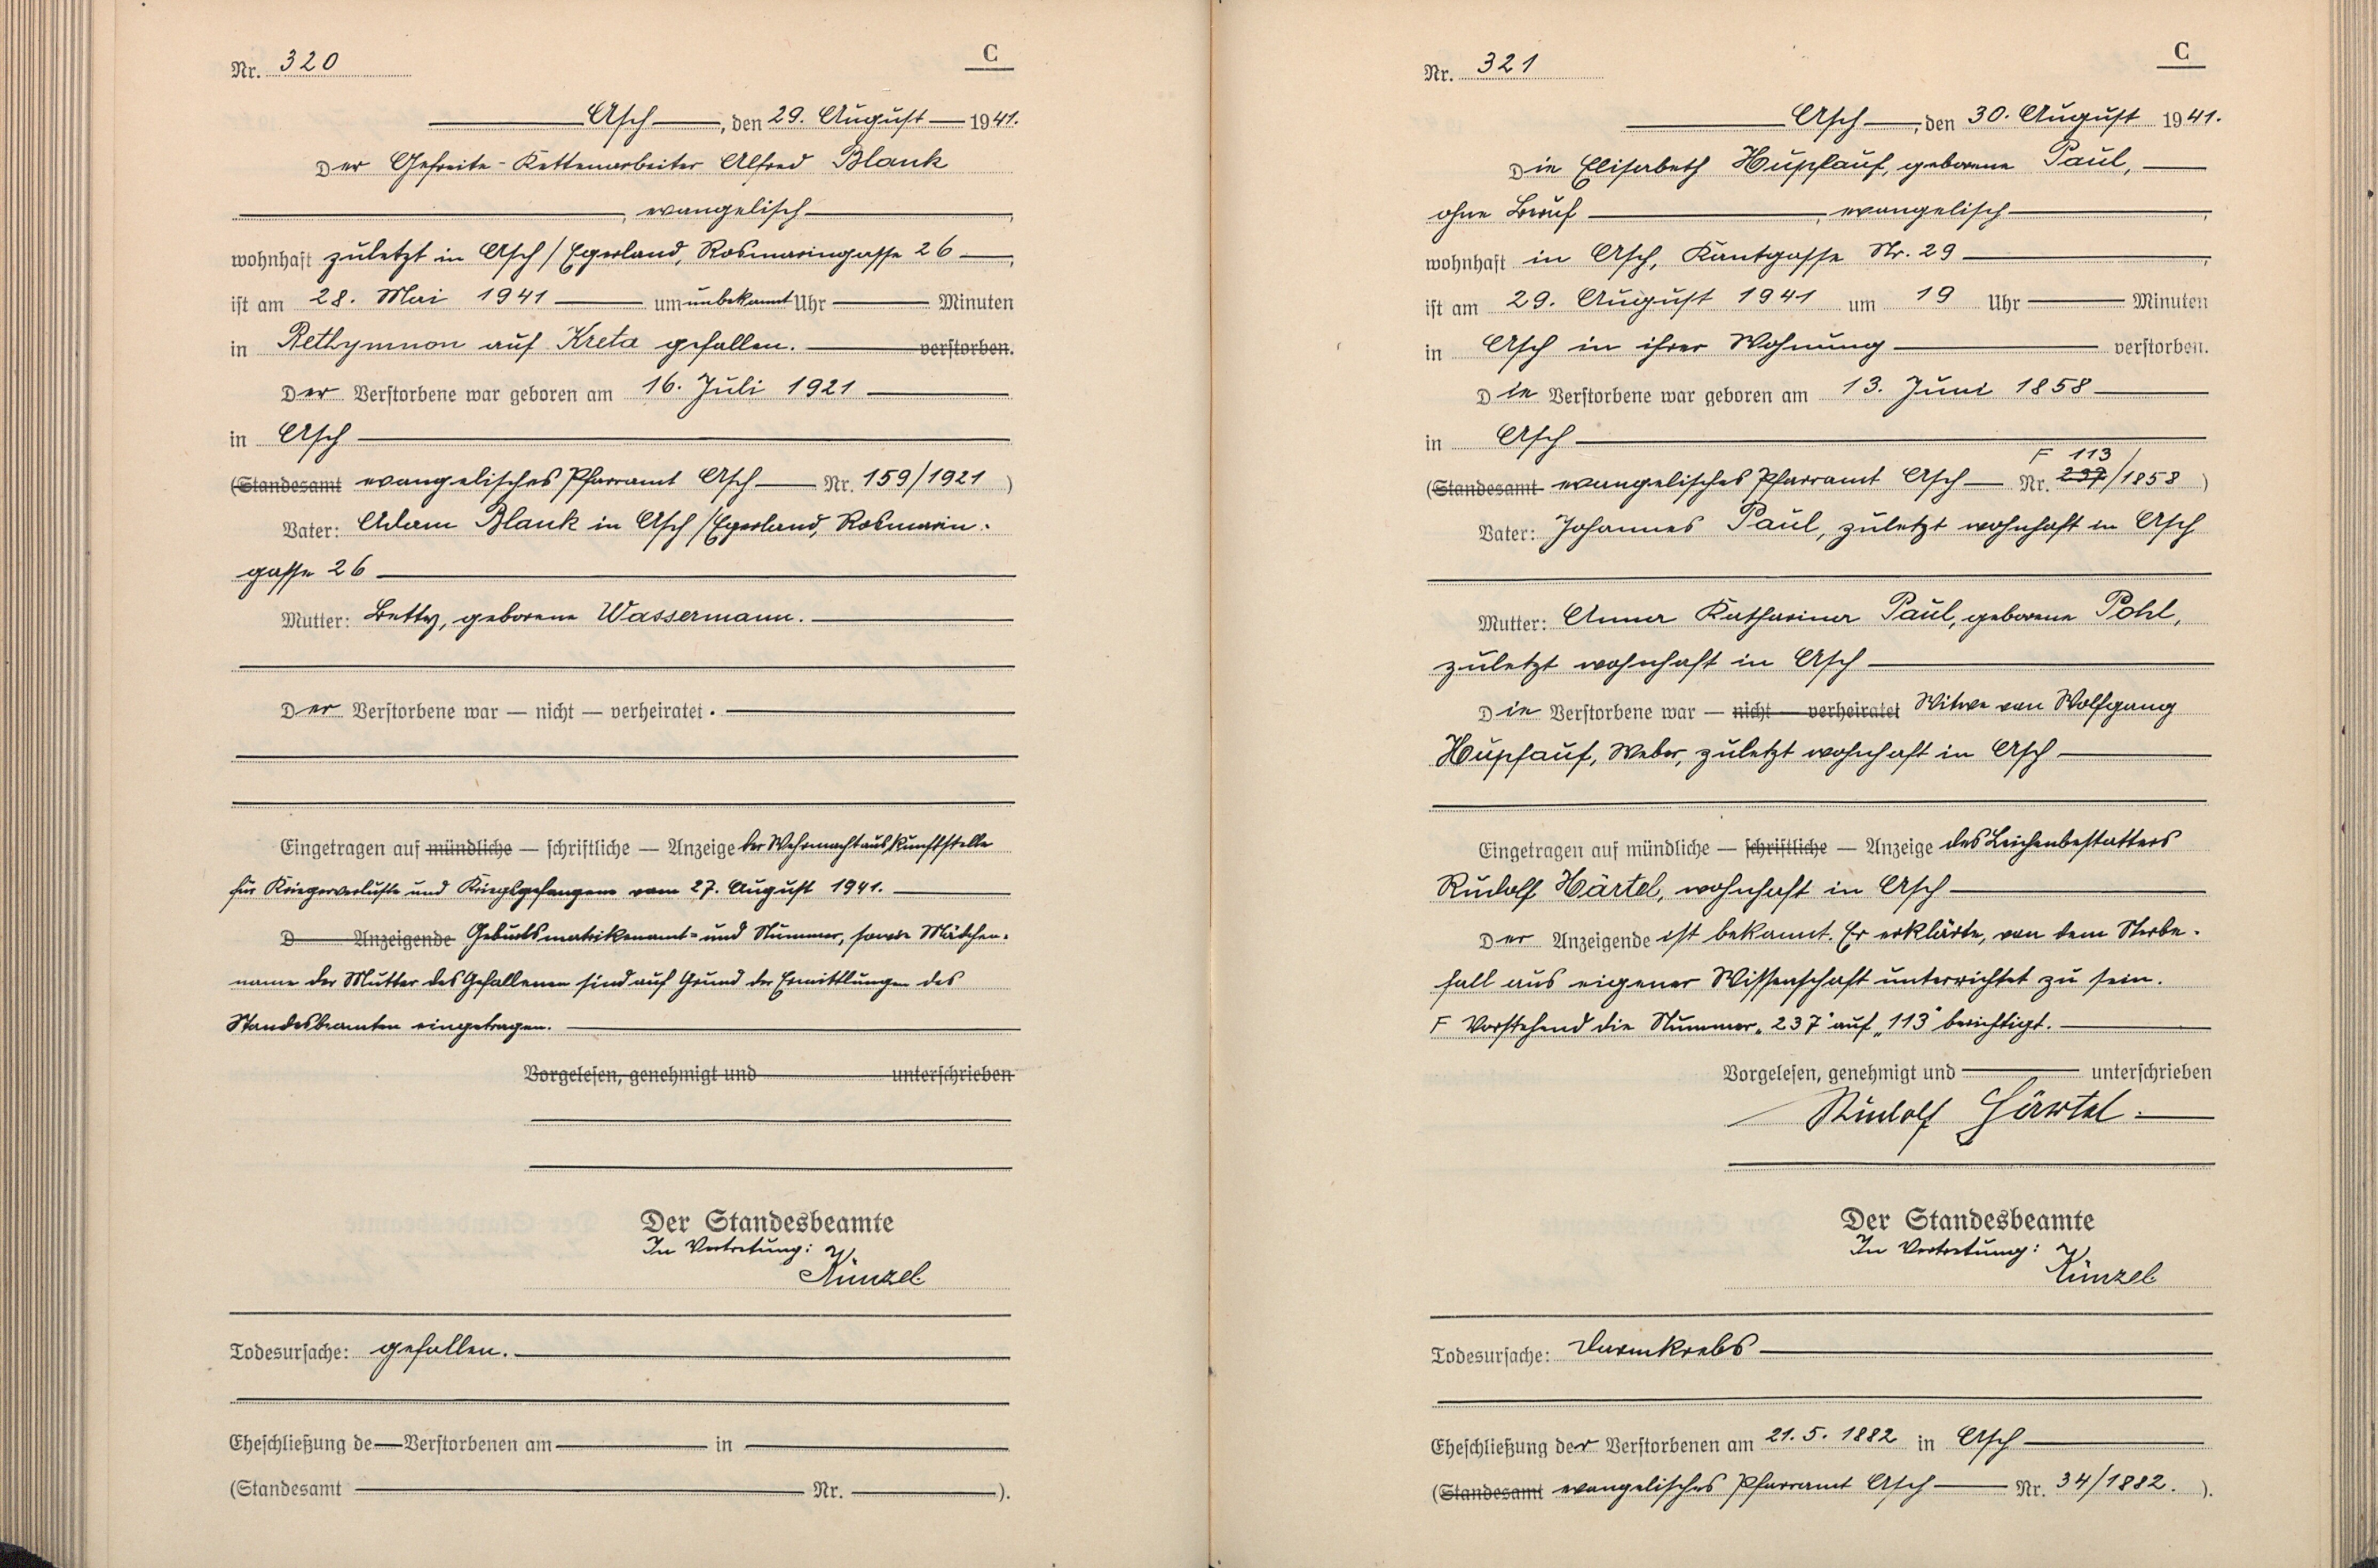 Nr. 320
C
Asch, den 29. August 1941.
Der Gefreite-Kettenarbeiter Alfred Blank
, evangelisch,
wohnhaft zuletzt in Asch/Egerland, Rosmaringasse 26,
ist am 28. Mai 1941 um unbekannt Uhr Minuten
in Rethymnon auf Kreta gefallen. verstorben.
Der Verstorbene war geboren am 16. Juli 1921
in Asch
(Standesamt evangelisches Pfarramt Asch Nr. 159/1921 )
Vater: Adam Blank in Asch/Egerland, Rosmarin-
gasse 26
Mutter: Betty, geborene Wassermann.
Der Verstorbene war — nicht — verheiratet.
Eingetragen auf mündliche — schriftliche — Anzeige der Wehrmachtauskunftstelle
für Kriegerverluste und Kriegsgefangene vom 27. August 1941.
D Anzeigende Geburtsmatrikenamt- und Nummer, sowie Mädchen-
name der Mutter des Gefallenen sind auf Grund der Ermittlungen des
Standesbeamten eingetragen.
Vorgelesen, genehmigt und unterschrieben
Der Standesbeamte
In Vertretung:
Künzel
Todesursache: gefallen.
Eheschließung de Verstorbenen am in
(Standesamt Nr. ).
Nr. 321
C
Asch, den 30. August 1941.
Die Elisabeth Hupfauf, geborene Paul,
ohne Beruf, evangelisch,
wohnhaft in Asch, Kantgasse Nr. 29,
ist am 29. August 1941 um 19 Uhr Minuten
in Asch in ihrer Wohnung verstorben.
Die Verstorbene war geboren am 13. Juni 1858
in Asch
F 113
(Standesamt evangelisches Pfarramt Asch Nr. 237/1858 )
Vater: Johannes Paul, zuletzt wohnhaft in Asch
Mutter: Anna Katharina Paul, geborene Pohl,
zuletzt wohnhaft in Asch
Die Verstorbene war — nicht — verheiratet Witwe von Wolfgang
Hupfauf, Weber, zuletzt wohnhaft in Asch
Eingetragen auf mündliche — schriftliche — Anzeige des Leichenbestatters
Rudolf Härtel, wohnhaft in Asch
Der Anzeigende ist bekannt. Er erklärte, von dem Sterbe-
fall aus eigener Wissenschaft unterrichtet zu sein.
F Vorstehend die Nummer „237" auf „113" berichtigt.
Vorgelesen, genehmigt und unterschrieben
Rudolf Härtel.
Der Standesbeamte
In Vertretung:
Künzel
Todesursache: Darmkrebs
Eheschließung der Verstorbenen am 21. 5. 1882 in Asch
(Standesamt evangelisches Pfarramt Asch Nr. 34/1882. ).